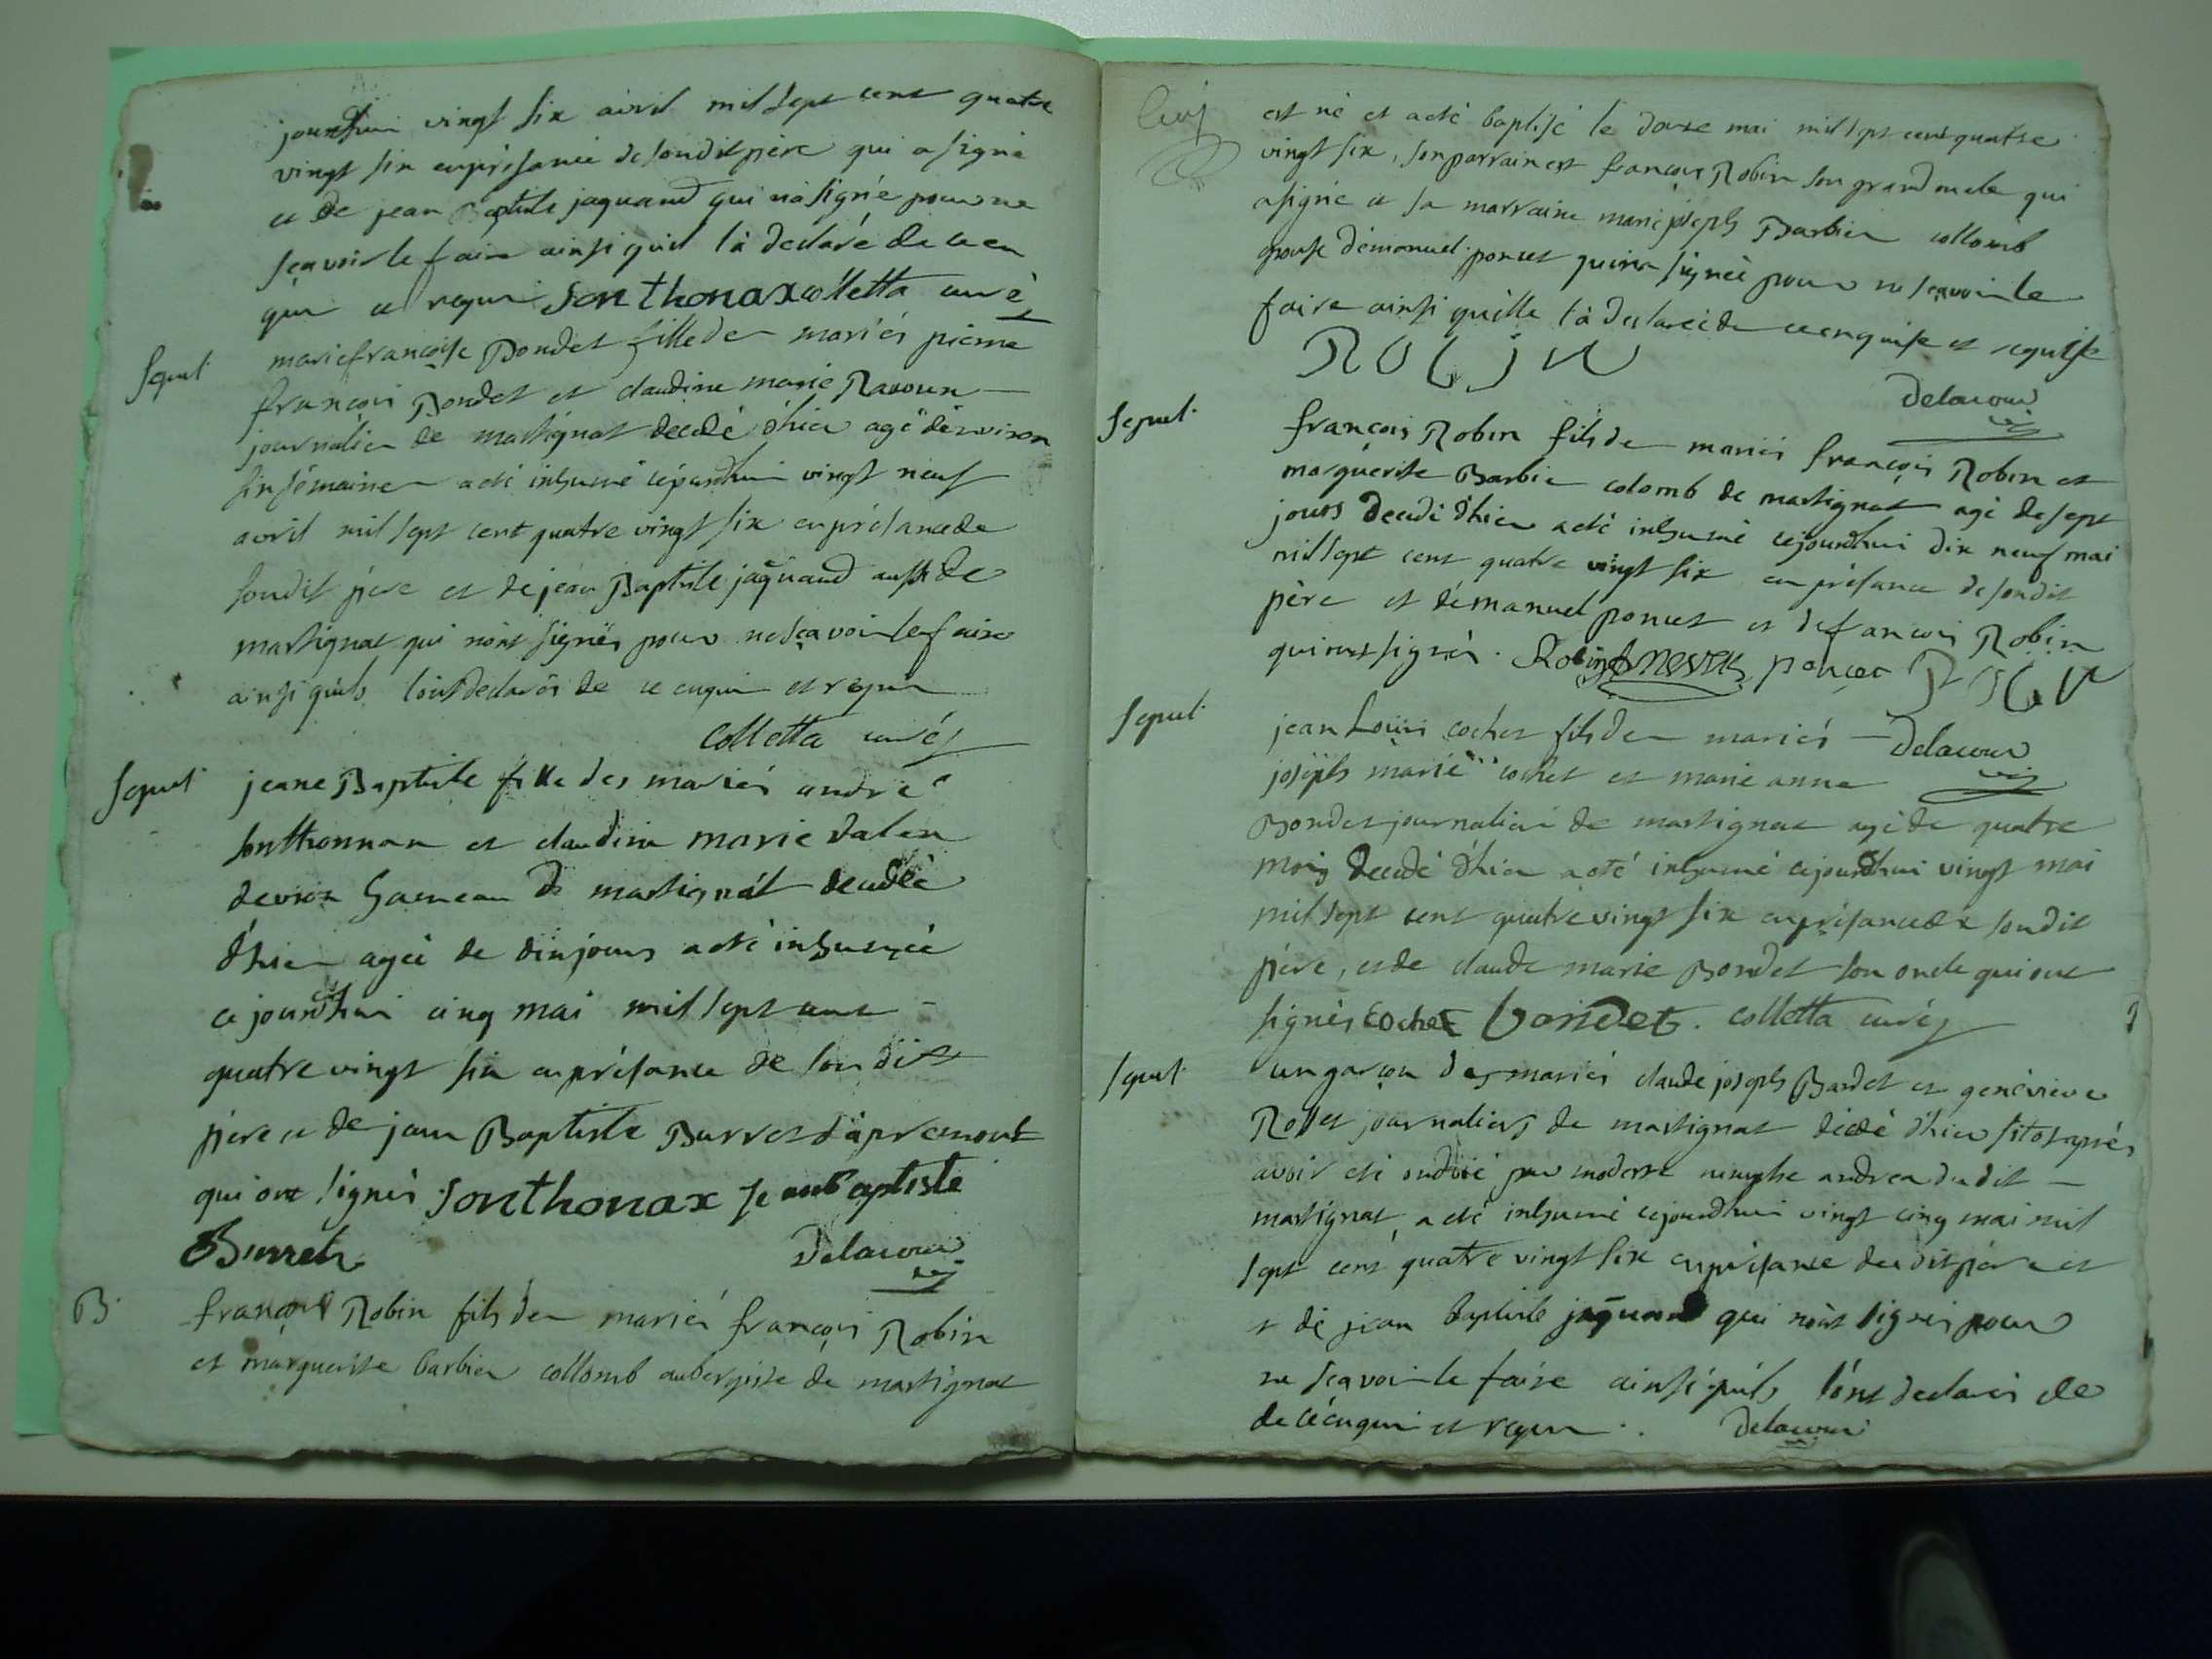 jourdhui vingt six avril mil sept cent quatre
vingt six en présance de sondit père qui a signé
et de jean Baptiste jaquand qui na signé pour ne
sçavoir le faire ainsi quil l'à declaré de ce en
quis et requis Sonthonax colletta curé
Sepul
marie françoise Bondet fille des mariés pierre
françois Bondet et claudine marie Ravoux
journalier de martignat decedé d'hier agé d'environ
six sémaines a eté inhumé cejourdhui vingt neuf
avril mil sept cent quatre vingt six en présance de
sondit père et de jean Baptiste jaquand aussi de
martignat qui n'ont signés pour ne sçavoir le faire
ainsi quils l'ont declarés de ce enquis et requis
colletta curé
Sepul
jeane Baptiste fille des mariés andré
sonthonnax et claudine marie
de vion hameau de martignat decedée
d'hier ageé de dix jours a eté inhumée
ce jourdhui cinq mai mil sept cent
quatre vingt six en présance de son dit
père et de jean Baptiste Burret d'apremont
qui ont signés Sonthonax jeanbaptiste
Burret Delacour
B
françois Robin fils des mariés françois Robin
et marguerite barbier collomb aubergiste de martignat
est né et a eté baptisé le douze mai mil sept cent quatre
vingt six, son parrain est françois Robin son grand oncle qui
a signé et sa marraine marie joseph Barbier collomb
epouse d'émanuel poncet qui n'a signée pour ne sçavoir le
faire ainsi quélle l'à declareé de ce enquise et requise
ROBIN
Delacour
Sepul
françois Robin fils des mariés françois Robin et
marguerite Barbier colomb de martignat agé de sept
jours decedé d'hier a eté inhumé cejourdhui dix neuf mai
mil sept cent quatre vingt six en présance de sondit
père et d'émanuel poncet et de francois Robin
qui ont signés. Robin poncet ROBIN
Delacour
Sepul
jean Louis cochet fils des mariés
joseph marie cochet et marie anne
Bondet journalier de martignat agé de quatre
mois decedé d'hier a eté inhumé cejourdhui vingt mai
mil sept cent quatre vingt six en présance de sondit
père, et de claude marie Bondet son oncle qui ont
signés cochet bondet. colletta curé
Sepul
un garçon des mariés claude joseph Bardet et geneviéve
journaliers de martignat dédé d'hier sitot aprés
avoir eté ondoié par modeste andrea dudit
martignat, a eté inhumé cejourdhui vingt cinq mai mil
sept cent quatre vingt six en présance dudit père et
et de jean baptiste jaquand qui n'ont signés pour
ne sçavoir le faire ainsi quils l'ont declarés de
de cé enquis et requis. Delacour